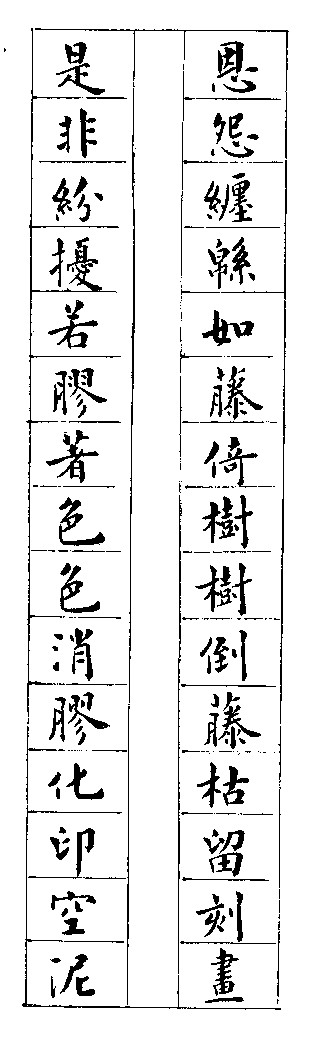 恩怨纏緜如藤倚樹樹倒藤枯留刻畫
是非紛擾若膠著色色消膠化印空泥